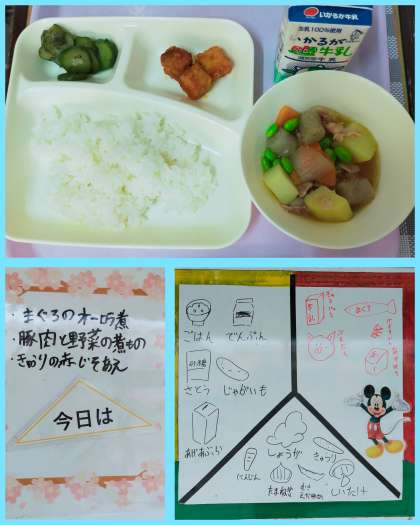 いかるが牛乳
生乳100%使用
いかるが
牛乳
・まぐろのオーロラ煮
・豚肉と野菜の煮もの
・きゅうりの赤じそあえ
今日は
ごはん
でんぷん
砂糖
さとう
じゃがいも
あげあぶら
牛乳
まぐろ
しょうが
きゅうり
にんじん
たまねぎ
むき
えだまめ
しいたけ